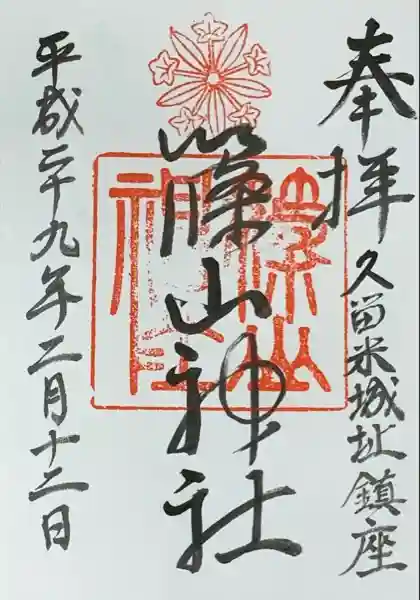 奉拝
久留米城址鎮座
篠山神社
篠山神社
平成二十九年二月十二日